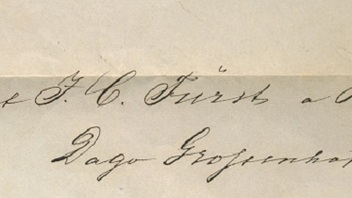 F. C. Fürst a
Dago Grossenho